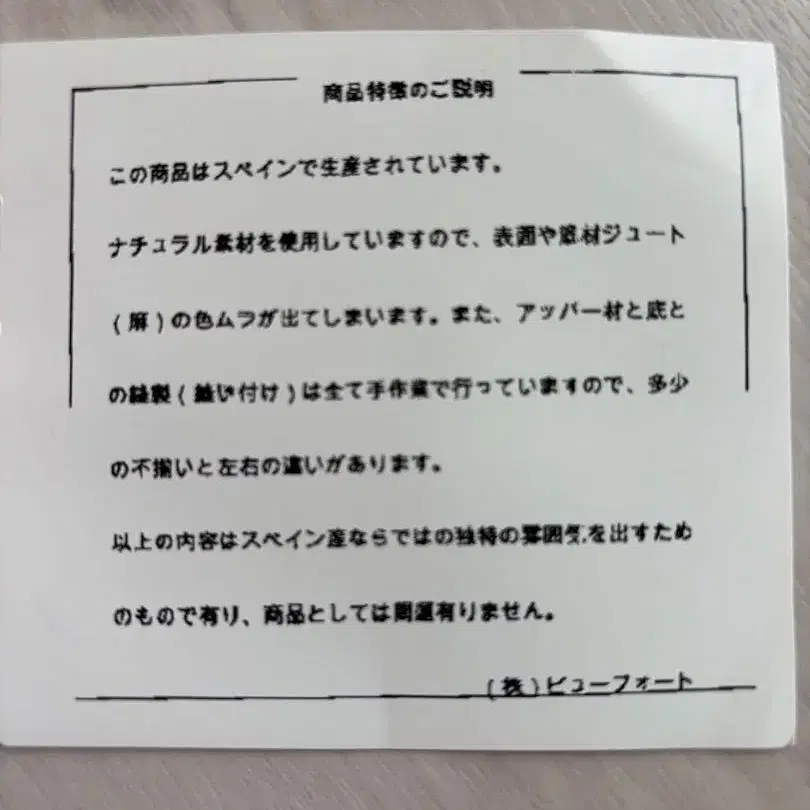 商品特徴のご説明
この商品はスペインで生産されています。
ナチュラル素材を使用していますので、表面や底材ジュート
(麻)の色ムラが出てしまいます。また、アッパー材と底と
の縫製(縫い付け)は全て手作業で行っていますので、多少
の不揃いと左右の違いがあります。
以上の内容はスペイン産ならではの独特の雰囲気を出すため
のもので有り、商品としては問題有りません。
(株)ビューフォート